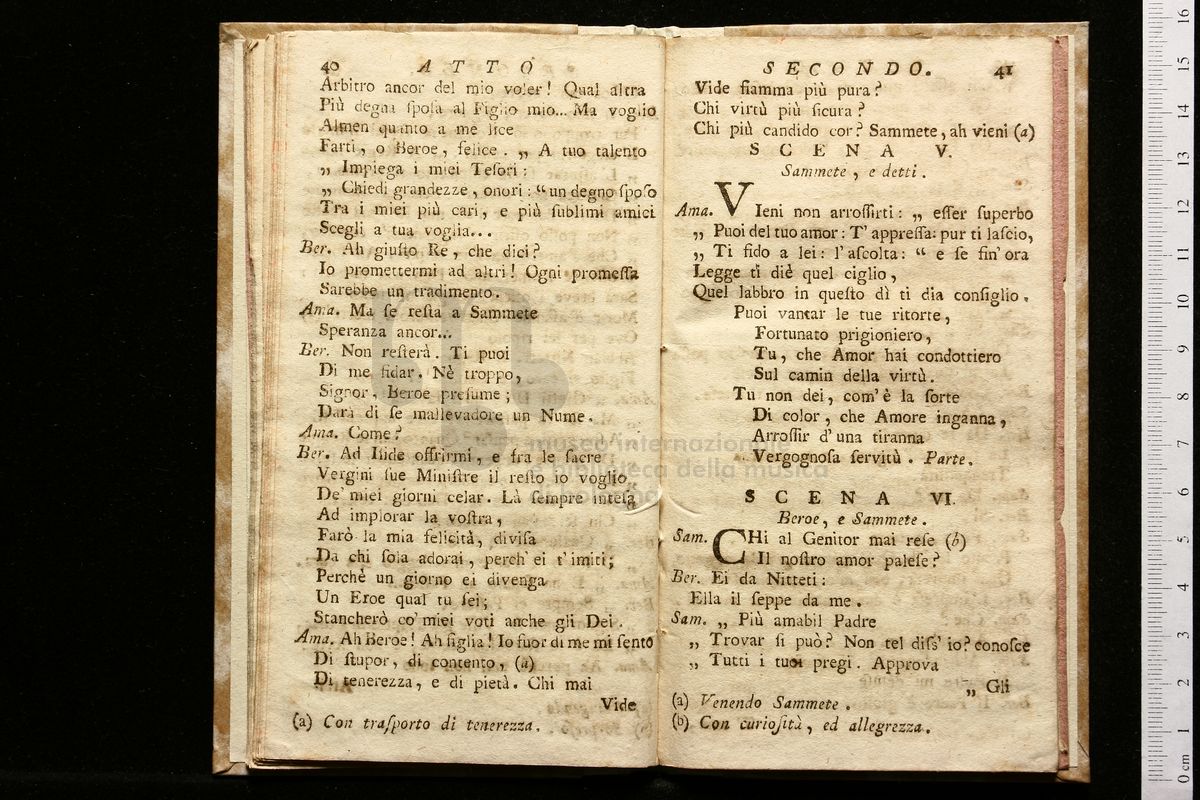 40 A T T O
Arbitro ancor del mio voler! Qual altra
Più degna ſpoſa al Figlio mio... Ma voglio
Almen quanto a me lice
Farti, o Beroe, felice. „ A tuo talento
„ Impiega i miei Teſori:
„ Chiedi grandezze, onori: “ un degno ſpoſo
Tra i miei più cari, e più ſublimi amici
Scegli a tua voglia...
Ber. Ah giuſto Re, che dici?
Io promettermi ad altri! Ogni promeſſa
Sarebbe un tradimento.
Ama. Ma ſe reſta a Sammete
Speranza ancor...
Ber. Non reſterà. Ti puoi
Di me fidar. Nè troppo,
Signor, Beroe preſume;
Darà di ſe mallevadore un Nume.
Ama. Come?
Ber. Ad Iſide offrirmi, e fra le ſacre
Vergini ſue Miniſtre il reſto io voglio
De' miei giorni celar. Là ſempre inteſa
Ad implorar la voſtra,
Farò la mia felicità, diviſa
Da chi ſola adorai, perch' ei t' imiti;
Perchè un giorno ei divenga
Un Eroe qual tu ſei;
Stancherò co' miei voti anche gli Dei.
Ama. Ah Beroe! Ah figlia! Io fuor di me mi ſento
Di ſtupor, di contento, (a)
Di tenerezza, e di pietà. Chi mai
Vide
(a) Con traſporto di tenerezza.
S E C O N D O. 41
Vide fiamma più pura?
Chi virtù più ſicura?
Chi più candido cor? Sammete, ah vieni (a)
S C E N A V.
Sammete, e detti.
Ama. VIeni non arroſſirti: „ eſſer ſuperbo
„ Puoi del tuo amor: T' appreſſa: pur ti laſcio,
„ Ti fido a lei: l' aſcolta: “ e ſe fin' ora
Legge ti diè quel ciglio,
Quel labbro in queſto dì ti dia conſiglio.
Puoi vantar le tue ritorte,
Fortunato prigioniero,
Tu, che Amor hai condottiero
Sul camin della virtù.
Tu non dei, com' è la ſorte
Di color, che Amore inganna,
Arroſſir d' una tiranna
Vergognoſa ſervitù. Parte.
S C E N A VI.
Beroe, e Sammete.
Sam. CHi al Genitor mai reſe (b)
Il noſtro amor paleſe?
Ber. Ei da Nitteti:
Ella il ſeppe da me.
Sam. „ Più amabil Padre
„ Trovar ſi può? Non tel diſſ' io? conoſce
„ Tutti i tuoi pregi. Approva
„ Gli
(a) Venendo Sammete.
(b) Con curioſità, ed allegrezza.
museo internazionale
e biblioteca della musica
0 cm 1 2 3 4 5 6 7 8 9 10 11 12 13 14 15 16